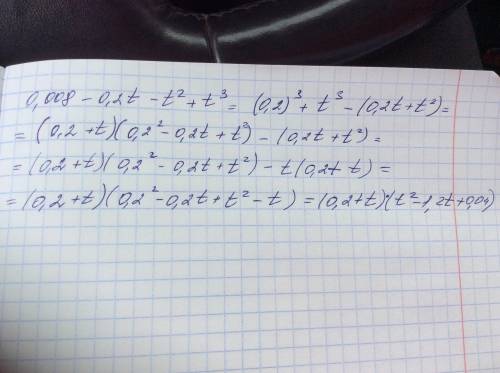 0,008 - 0,2t - t² + t³ = (0,2)³ + t³ - (0,2t + t²) =
= (0,2 + t)(0,2² - 0,2t + t²) - (0,2t + t²) =
= (0,2 + t)(0,2² - 0,2t + t²) - t(0,2+ t) =
= (0,2 + t)(0,2² - 0,2t + t² - t) = (0,2+t)(t² - 1,2t + 0,04)